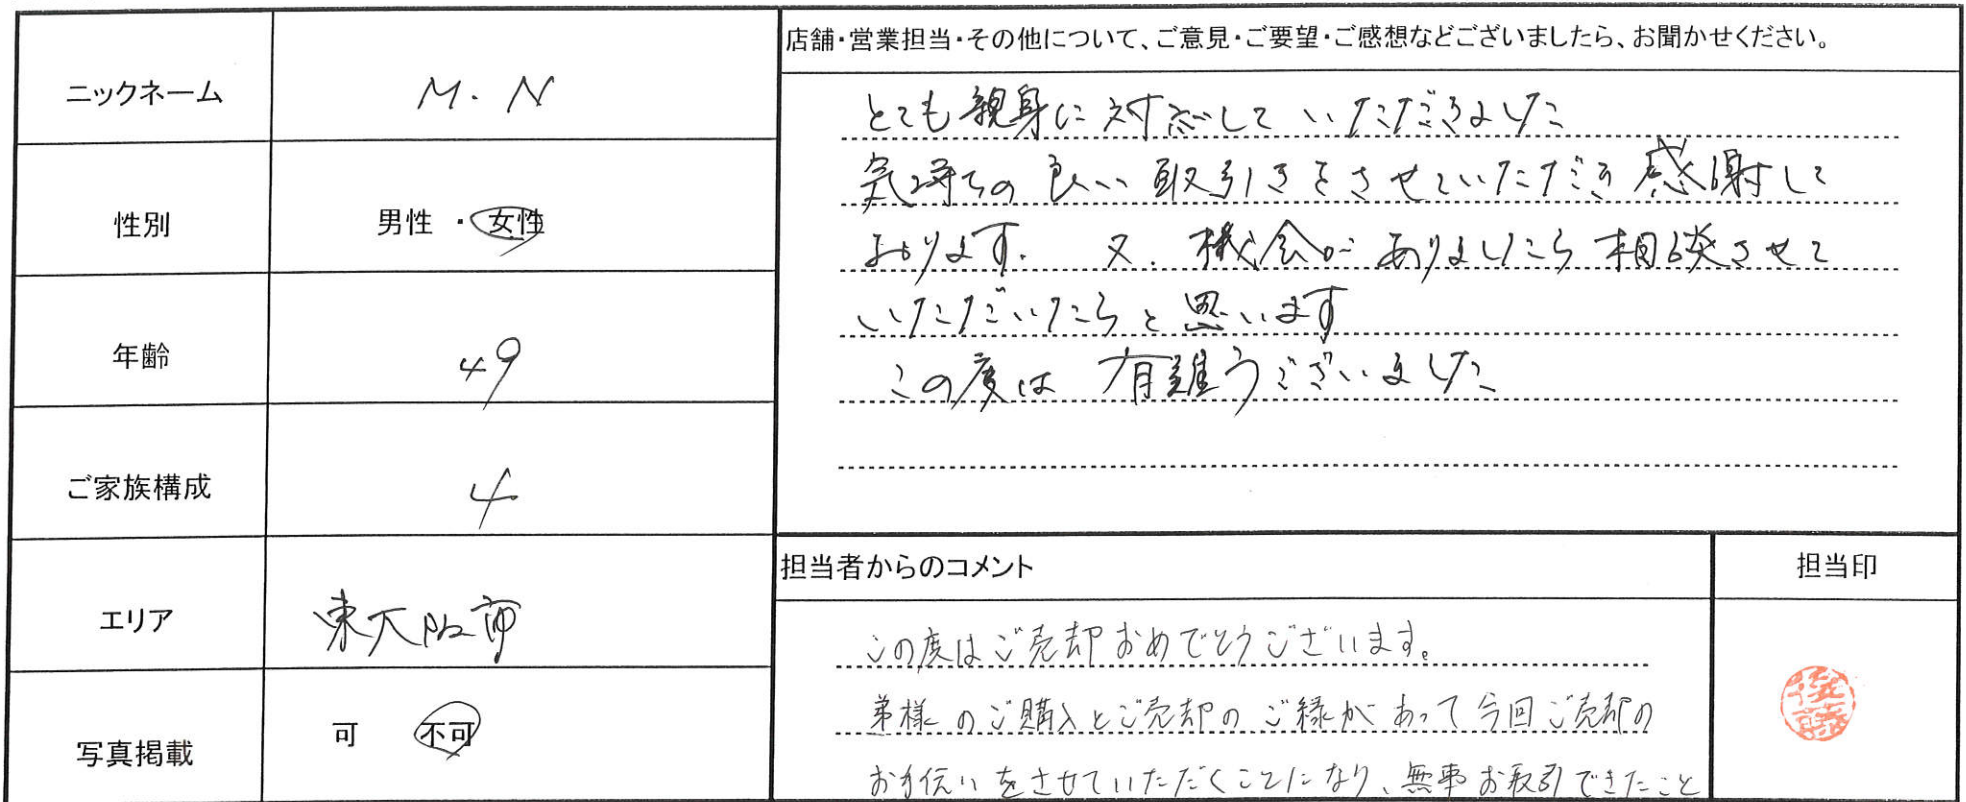 ニックネーム
M.N
性別
男性・女性
年齢
49
ご家族構成
4
エリア
東大阪市
写真掲載
可 不可
店舗・営業担当・その他について、ご意見・ご要望・ご感想などございましたら、お聞かせください。
とても親身に対応していただきました
気持ちの良い取引きをさせていただき感謝して
おります. 又. 機会がありましたら相談させて
いただいたらと思います
この度は有難うございました
担当者からのコメント
この度はご売却おめでとうございます。
弟様のご購入とご売却のご縁があって今回ご売却の
お手伝いをさせていただくことになり、無事お取引できたこと
担当印
後藤